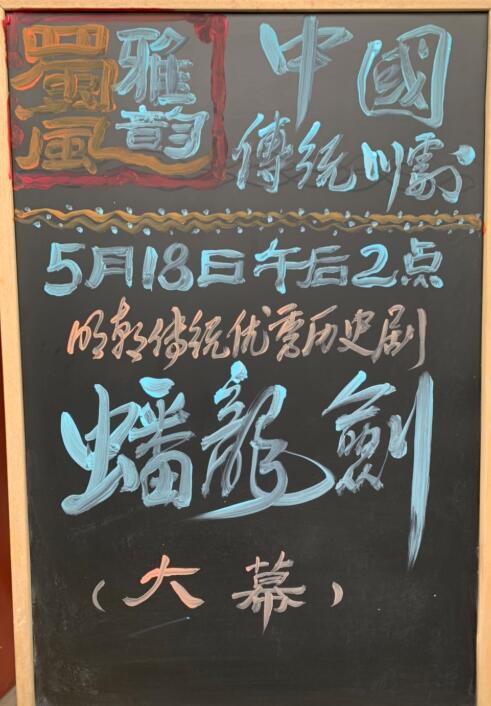 蜀風雅韵
中國
傳统川劇
5月18日午后2点
明朝传统优秀历史剧
蟠龍劍
（大幕）